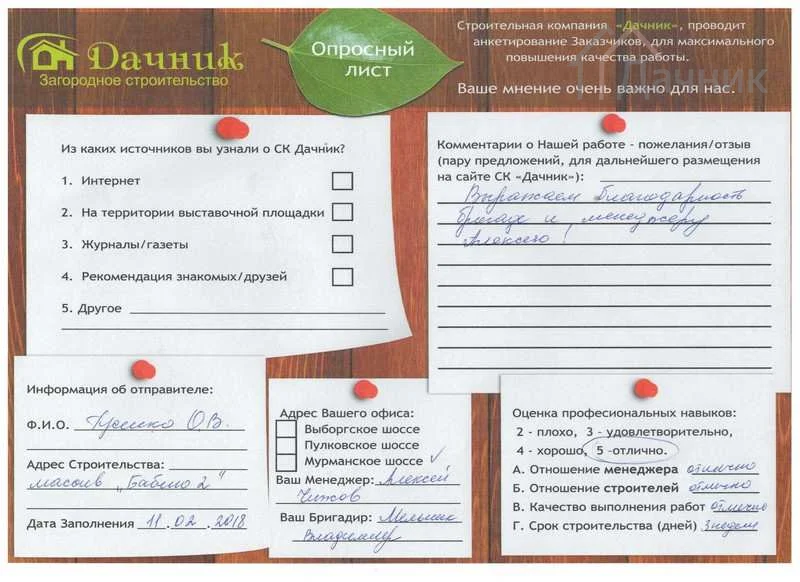 Дачник
Загородное строительство
Опросный
лист
Строительная компания «Дачник», проводит
анкетирование Заказчиков, для максимального
повышения качества работы.
Ваше мнение очень важно для нас.
Дачник
Из каких источников вы узнали о СК Дачник?
1. Интернет
2. На территории выставочной площадки
3. Журналы/газеты
4. Рекомендация знакомых/друзей
5. Другое
Комментарии о Нашей работе - пожелания/отзыв
(пару предложений, для дальнейшего размещения
на сайте СК «Дачник»):
Выражаем благодарность
бригаде и менеджеру
Алексею!
Информация об отправителе:
Ф.И.О. О.В.
Адрес Строительства:
массив „Бабино 2"
Дата Заполнения 11.02.2018
Адрес Вашего офиса:
Выборгское шоссе
Пулковское шоссе
Мурманское шоссе ✓
Ваш Менеджер: Алексей
Чижов
Ваш Бригадир: Мельник
Владимир
Оценка професиональных навыков:
2 - плохо, 3 - удовлетворительно,
4 - хорошо, 5 -отлично.
А. Отношение менеджера отлично
Б. Отношение строителей отлично
В. Качество выполнения работ отлично
Г. Срок строительства (дней) 3 недели